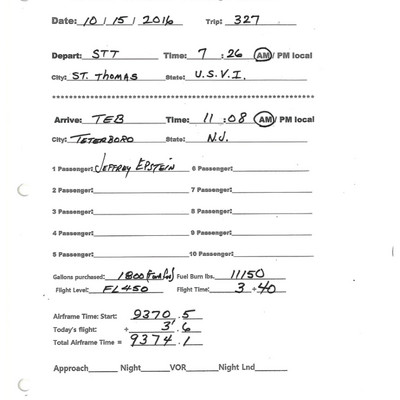 Date: 10 / 15 / 2016 Trip: 327
Depart: STT Time: 7 : 26 AM / PM local
City: ST. THOMAS State: U.S.V.I.
****************************************************************
Arrive: TEB Time: 11 : 08 AM / PM local
City: TETERBORO State: N.J.
1 Passenger: JEFFREY EPSTEIN 6 Passenger:
2 Passenger: 7 Passenger:
3 Passenger: 8 Passenger:
4 Passenger: 9 Passenger:
5 Passenger: 10 Passenger:
Gallons purchased: 1800 Fuel Burn lbs. 11150
Flight Level: FL450 Flight Time: 3 + 40
Airframe Time: Start: 9370 . 5
Today's flight: + 3 . 6
Total Airframe Time = 9374 . 1
Approach Night VOR Night Lnd